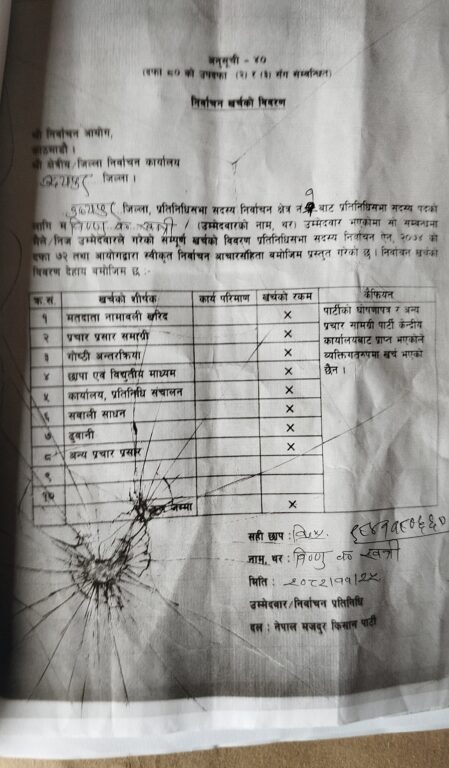 अनुसूची - ४०
(दफा ८० को उपदफा (२) र (३) सँग सम्बन्धित)
निर्वाचन खर्चको विवरण
श्री निर्वाचन आयोग,
काठमाडौं ।
श्री क्षेत्रीय/जिल्ला निर्वाचन कार्यालय
उदयपुर जिल्ला ।
उदयपुर जिल्ला, प्रतिनिधिसभा सदस्य निर्वाचन क्षेत्र नं १ बाट प्रतिनिधिसभा सदस्य पदको
लागि म विष्णु के खत्री (उम्मेदवारको नाम, थर) उम्मेदवार भएकोमा सो सम्बन्धमा
मैले/निज उम्मेदवारले गरेको सम्पूर्ण खर्चको विवरण प्रतिनिधिसभा सदस्य निर्वाचन ऐन, २०७४ को
दफा ७२ तथा आयोगद्वारा स्वीकृत निर्वाचन आचारसंहिता बमोजिम प्रस्तुत गरेको छु । निर्वाचन खर्चको
विवरण देहाय बमोजिम छ :-
क्र.सं. खर्चको शीर्षक कार्य परिमाण खर्चको रकम कैफियत
१ मतदाता नामावली खरिद x
२ प्रचार प्रसार समाग्री x
३ गोष्ठी अन्तरक्रिया x
४ छापा एवं विद्युतीय माध्यम x
५ कार्यालय, प्रतिनिधि संचालन x
६ सवाली साधन x
७ ढुवानी x
८ अन्य प्रचार प्रसार
९
१०
जम्मा x
पार्टीको घोषणापत्र र अन्य
प्रचार सामग्री पार्टी केन्द्रीय
कार्यालयबाट प्राप्त भएकोले
व्यक्तिगतरुपमा खर्च भएको
छैन ।
सही छाप :
नाम, थर : विष्णु के खत्री
मिति : २०८२/११/२५
उम्मेदवार/निर्वाचन प्रतिनिधि
दल : नेपाल मजदुर किसान पार्टी